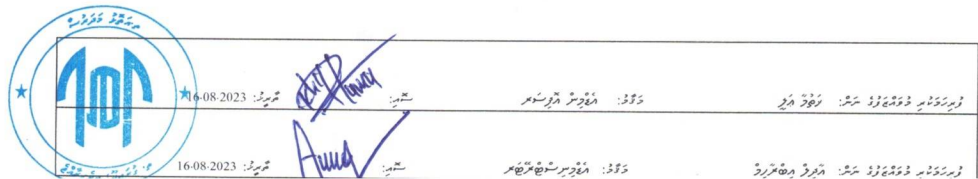 ފުރިހަމަކުރި މުވައްޒަފުގެ ނަން: ފަތުމާ ޢަލީ މަޤާމު: އެޑްމިން އޮފިސަރ ސޮއި: ތާރީޚު: 16-08-2023
ފުރިހަމަކުރި މުވައްޒަފުގެ ނަން: އާދިލް އިބްރާހިމް މަޤާމު: އެޑްމިނިސްޓްރޭޓަރ ސޮއި: ތާރީޚު: 16-08-2023